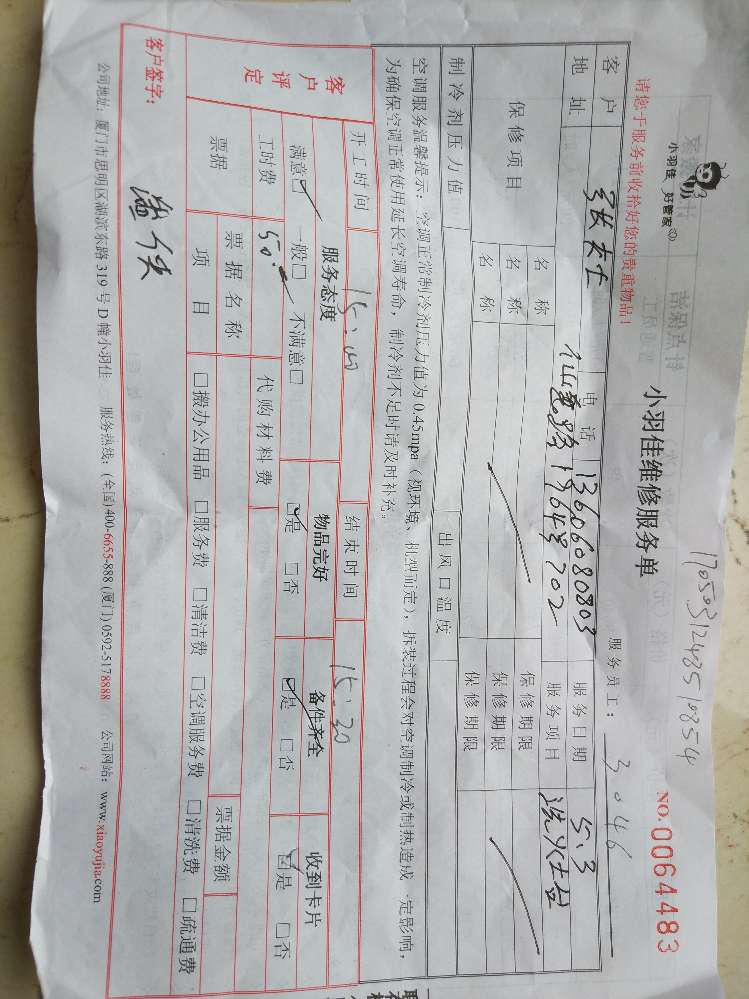 小羽佳 好管家
小羽佳维修服务单
1705031248510854
请您于服务前收拾好您的贵重物品！
服务员工：3046
NO.0064483
客户 电话 13606080803 服务日期 5.3
地址 服务项目
保修项目 名称 保修期限
名称 保修期限
名称 保修期限
制冷剂压力值 出风口温度
空调服务温馨提示：空调正常制冷剂压力值为0.45mpa（视环境、机型而定），拆装过程会对空调制冷或制热造成一定影响，
为确保空调正常使用延长空调寿命，制冷剂不足时请及时补充。
开工时间 15:00 结束时间 15:20
客户评定 服务态度 物品完好 备件齐全 收到卡片
满意□ 一般□ 不满意□ □是 □否 □是 □否 □是 □否
工时费 50. 代购材料费
票据 票据名称 票据金额
项目 □搬办公用品 □服务费 □清洁费 □空调服务费 □清洗费 □疏通费
客户签字：
公司地址：厦门市思明区湖滨东路319号D幢小羽佳 服务热线：(全国)400-6655-888 (厦门)0592-5178888 公司网站：www.xiaoyujia.com